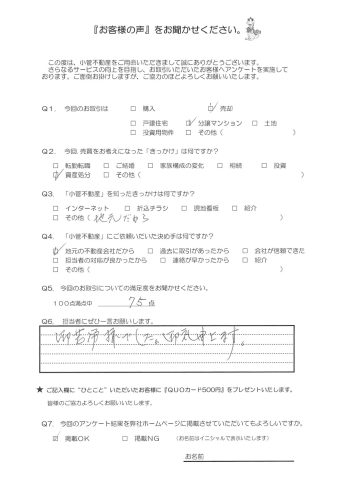 『お客様の声』をお聞かせください。
この度は、小菅不動産をご用命いただきまして誠にありがとうございます。
さらなるサービスの向上を目指し、お取引いただいたお客様へアンケートを実施して
おります。ご面倒お掛けしますが、ご協力のほどよろしくお願いいたします。
Q1. 今回のお取引は □ 購入 ☑ 売却
□ 戸建住宅 ☑ 分譲マンション □ 土地
□ 投資用物件 □ その他 ( )
Q2. 今回、売買をお考えになった「きっかけ」は何ですか?
□ 転勤転職 □ ご結婚 □ 家族構成の変化 □ 相続 □ 投資
☑ 資産処分 □ その他 ( )
Q3. 「小菅不動産」を知ったきっかけは何ですか?
□ インターネット □ 折込チラシ □ 現地看板 □ 紹介
□ その他 ( 地元だから )
Q4. 「小菅不動産」にご依頼いただいた決め手は何ですか?
☑ 地元の不動産会社だから □ 過去に取引があったから □ 会社が信頼できた
□ 担当者の対応が良かったから □ 連絡が早かったから □ 紹介
□ その他 ( )
Q5. 今回のお取引についての満足度をお聞かせください。
100点満点中 75 点
Q6. 担当者にぜひ一言お願いします。
御苦労様でした。御礼申上ます。
★ ご記入欄に“ひとこと”いただいたお客様に『QUOカード500円』をプレゼントいたします。
皆様のご協力よろしくお願いいたします。
Q7. 今回のアンケート結果を弊社ホームページに掲載させていただいてもよろしいですか。
☑ 掲載OK □ 掲載NG (お名前はイニシャルで表示いたします)
お名前